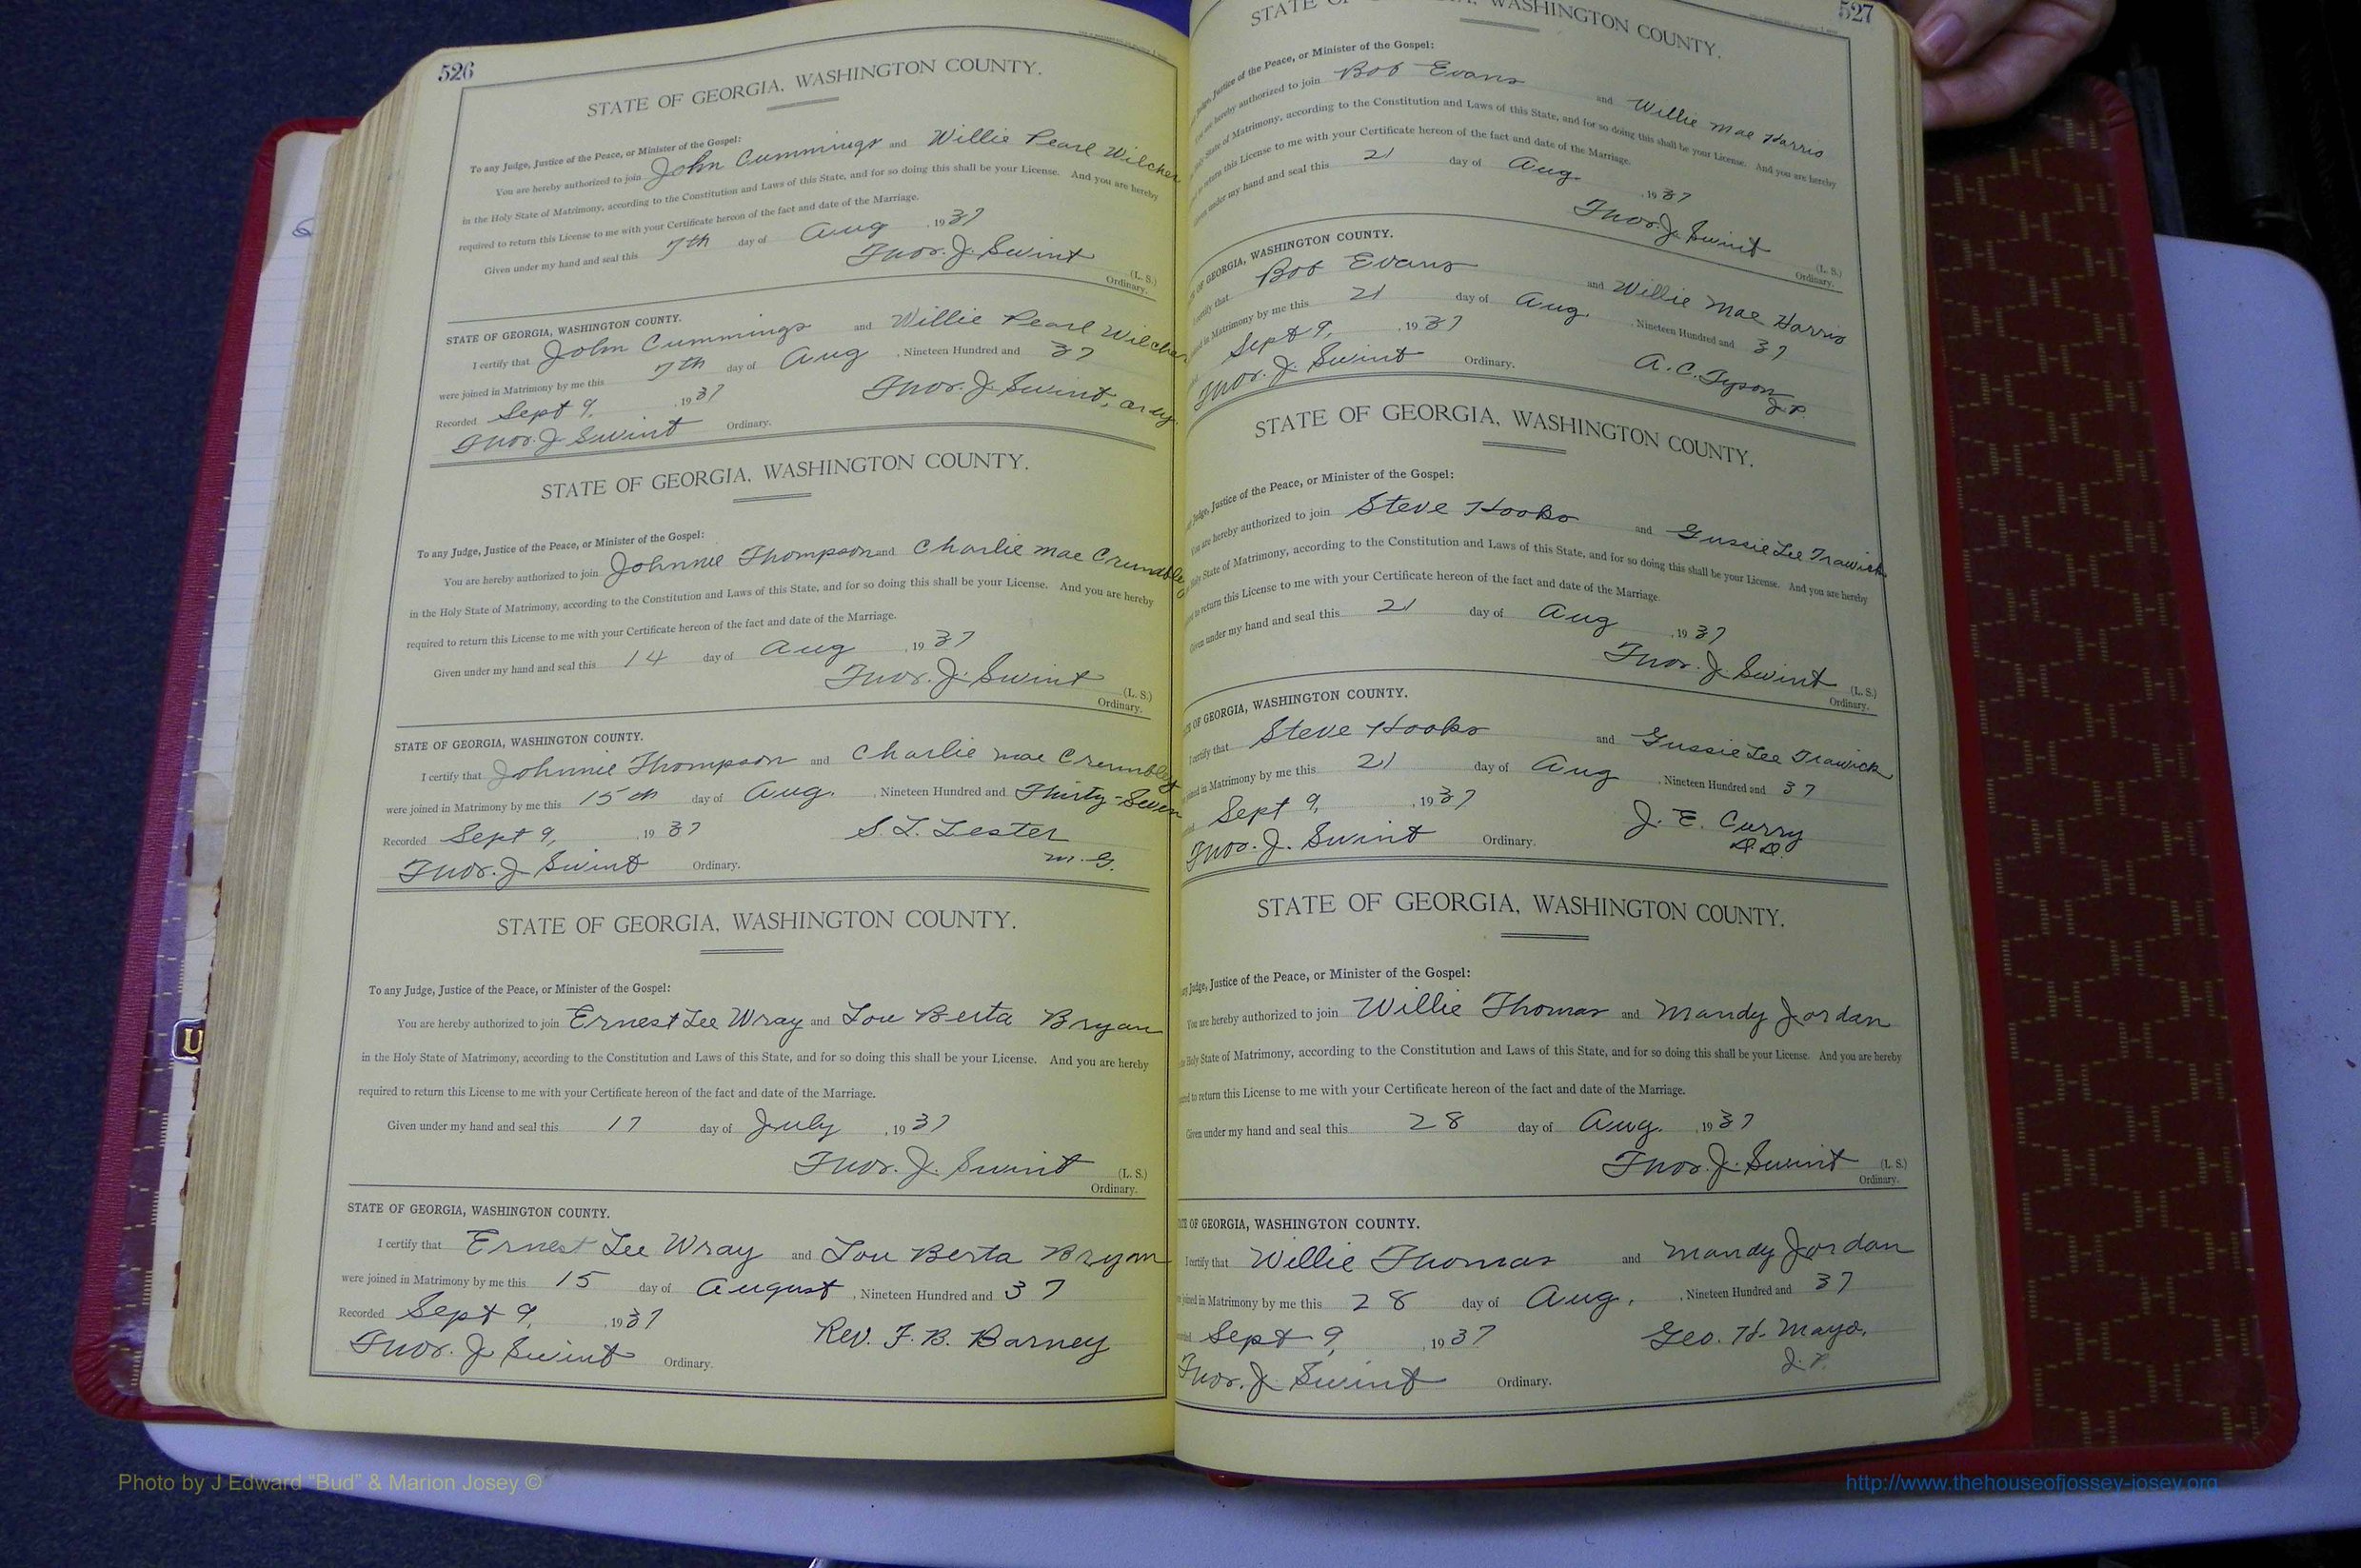 526
STATE OF GEORGIA, WASHINGTON COUNTY.
To any Judge, Justice of the Peace, or Minister of the Gospel:
You are hereby authorized to join John Cummings and Willie Pearl Wilcher
in the Holy State of Matrimony, according to the Constitution and Laws of this State, and for so doing this shall be your License. And you are hereby
required to return this License to me with your Certificate hereon of the fact and date of the Marriage.
Given under my hand and seal this 7th day of Aug, 1937
Thos. J. Swint (L. S.)
Ordinary.
STATE OF GEORGIA, WASHINGTON COUNTY.
I certify that John Cummings and Willie Pearl Wilcher
were joined in Matrimony by me this 7th day of Aug, Nineteen Hundred and 37
Recorded Sept 9, 1937 Thos. J. Swint, Ordy.
Thos. J. Swint Ordinary.
STATE OF GEORGIA, WASHINGTON COUNTY.
To any Judge, Justice of the Peace, or Minister of the Gospel:
You are hereby authorized to join Johnnie Thompson and Charlie Mae Crumbley
in the Holy State of Matrimony, according to the Constitution and Laws of this State, and for so doing this shall be your License. And you are hereby
required to return this License to me with your Certificate hereon of the fact and date of the Marriage.
Given under my hand and seal this 14 day of Aug, 1937
Thos. J. Swint (L. S.)
Ordinary.
STATE OF GEORGIA, WASHINGTON COUNTY.
I certify that Johnnie Thompson and Charlie Mae Crumbley
were joined in Matrimony by me this 15th day of Aug., Nineteen Hundred and Thirty-Seven
Recorded Sept 9, 1937 S. L. Lester
Thos. J. Swint Ordinary. M. G.
STATE OF GEORGIA, WASHINGTON COUNTY.
To any Judge, Justice of the Peace, or Minister of the Gospel:
You are hereby authorized to join Ernest Lee Wray and Lou Berta Bryan
in the Holy State of Matrimony, according to the Constitution and Laws of this State, and for so doing this shall be your License. And you are hereby
required to return this License to me with your Certificate hereon of the fact and date of the Marriage.
Given under my hand and seal this 17 day of July, 1937
Thos. J. Swint (L. S.)
Ordinary.
STATE OF GEORGIA, WASHINGTON COUNTY.
I certify that Ernest Lee Wray and Lou Berta Bryan
were joined in Matrimony by me this 15 day of August, Nineteen Hundred and 37
Recorded Sept 9, 1937 Rev. F. B. Barney
Thos. J. Swint Ordinary.
527
STATE OF WASHINGTON COUNTY.
Judge, Justice of the Peace, or Minister of the Gospel:
are hereby authorized to join Bob Evans and Willie Mae Harris
State of Matrimony, according to the Constitution and Laws of this State, and for so doing this shall be your License. And you are hereby
to return this License to me with your Certificate hereon of the fact and date of the Marriage.
under my hand and seal this 21 day of Aug., 1937
Thos. J. Swint (L. S.)
Ordinary.
OF GEORGIA, WASHINGTON COUNTY.
certify that Bob Evans and Willie Mae Harris
in Matrimony by me this 21 day of Aug., Nineteen Hundred and 37
Sept 9, 1937 A. C. Tyson
Thos. J. Swint Ordinary. J. P.
STATE OF GEORGIA, WASHINGTON COUNTY.
Judge, Justice of the Peace, or Minister of the Gospel:
You are hereby authorized to join Steve Hooks and Gussie Lee Trawick
Holy State of Matrimony, according to the Constitution and Laws of this State, and for so doing this shall be your License. And you are hereby
to return this License to me with your Certificate hereon of the fact and date of the Marriage.
Given under my hand and seal this 21 day of Aug, 1937
Thos. J. Swint (L. S.)
Ordinary.
OF GEORGIA, WASHINGTON COUNTY.
I certify that Steve Hooks and Gussie Lee Trawick
in Matrimony by me this 21 day of Aug, Nineteen Hundred and 37
Sept 9, 1937 J. E. Curry
Thos. J. Swint Ordinary. D. D.
STATE OF GEORGIA, WASHINGTON COUNTY.
Judge, Justice of the Peace, or Minister of the Gospel:
You are hereby authorized to join Willie Thomas and Mandy Jordan
Holy State of Matrimony, according to the Constitution and Laws of this State, and for so doing this shall be your License. And you are hereby
to return this License to me with your Certificate hereon of the fact and date of the Marriage.
Given under my hand and seal this 28 day of Aug., 1937
Thos. J. Swint (L. S.)
Ordinary.
OF GEORGIA, WASHINGTON COUNTY.
I certify that Willie Thomas and Mandy Jordan
joined in Matrimony by me this 28 day of Aug., Nineteen Hundred and 37
Sept 9, 1937 Geo. H. Mayo,
Thos. J. Swint Ordinary. J. P.
Photo by J Edward "Bud" & Marion Josey ©
http://www.thehouseofjossey-josey.org